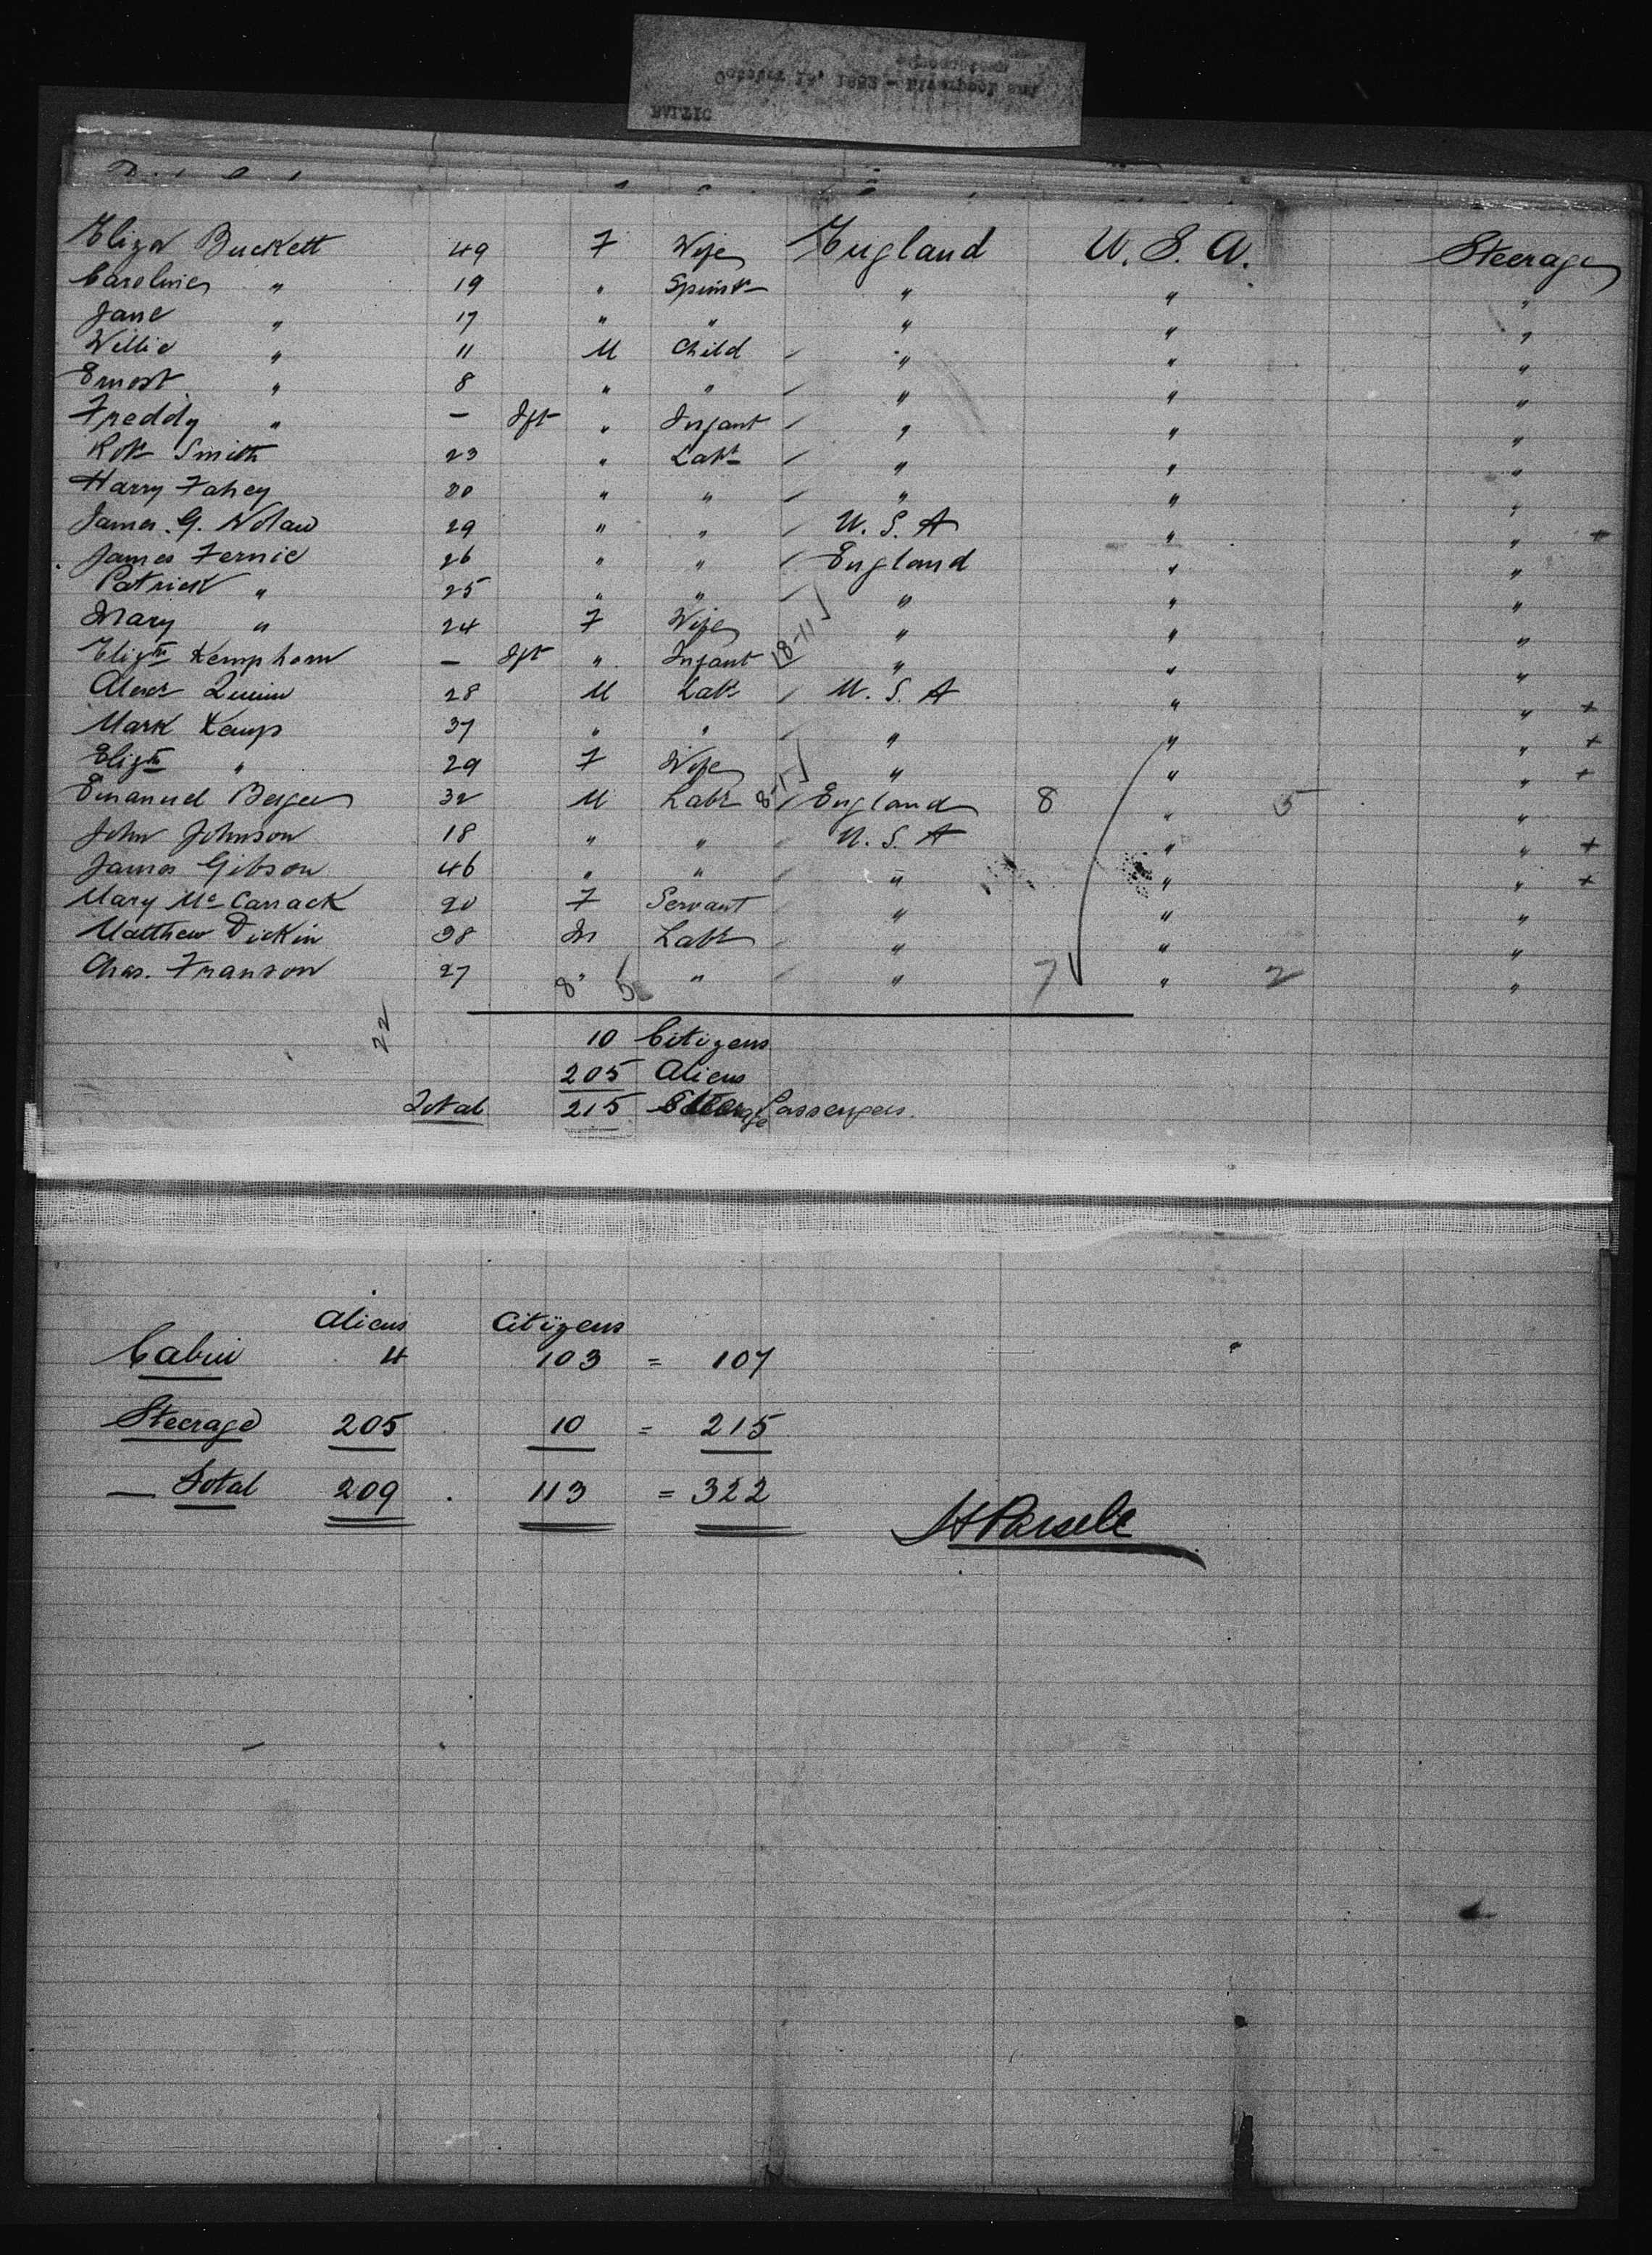 BALTIC
Eliza Buckett 49 F Wife England U. S. A. Steerage
Caroline " 19 " Spinst " " "
Jane " 17 " " " " "
Willie " 11 M Child / " " "
Ernest " 8 " " / " " "
Freddy " – Ift " Infant / " " "
Robt Smith 23 " Labr / " " "
Harry Fahey 30 " " / " " "
James G. Nolan 29 " " / U. S. A " " +
James Fernie 26 " " / England " "
Patrick " 25 " " / " " "
Mary " 24 F Wife " " "
Elizth Kemphorn – Ift " Infant 18-11 " " "
Alexr Quinn 28 M Labr / U. S. A " " +
Mark Kemp 37 " " / " " " +
Elizth " 29 F Wife " " " +
Emanuel Berger 32 M Labr 8-1 / England 8 " 5 "
John Johnson 18 " " / U. S. A " " +
James Gibson 46 " " / " " " +
Mary McCarrack 20 F Servant " " "
Matthew Dickin 38 M Labr / " " "
Chas. Franson 27 " " / " 7 " 2 "
8 5
22
10 Citizens
205 Aliens
Total 215 Steerage Passengers.
Aliens Citizens
Cabin 4 103 = 107
Steerage 205 10 = 215
— Total 209 . 113 = 322